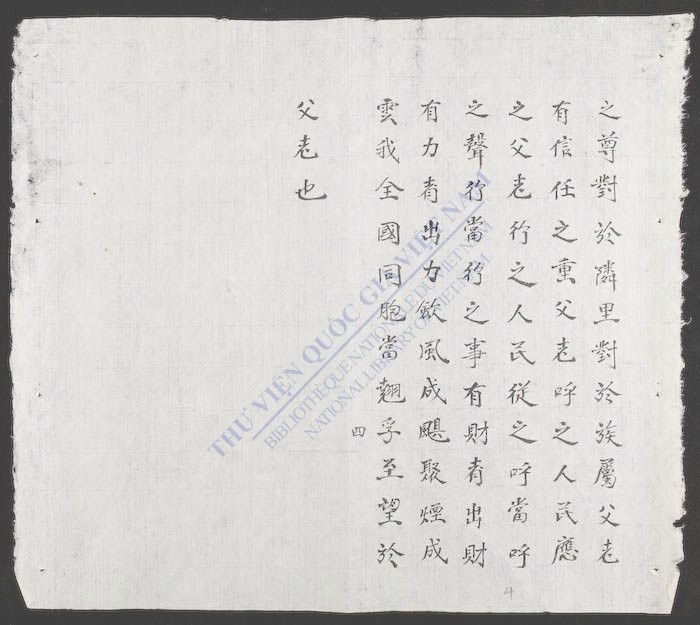 之尊對於隣里對於族屬父老
有信任之重父老呼之人民應
之父老行之人民從之呼當呼
之聲行當行之事有財者出財
有力者出力飲風成颶聚煙成
雲我全國同胞當翹孚至望於
父老也
四
4
THƯ VIỆN QUỐC GIA VIỆT NAM
BIBLIOTHÈQUE NATIONALE DU VIETNAM
NATIONAL LIBRARY OF VIETNAM